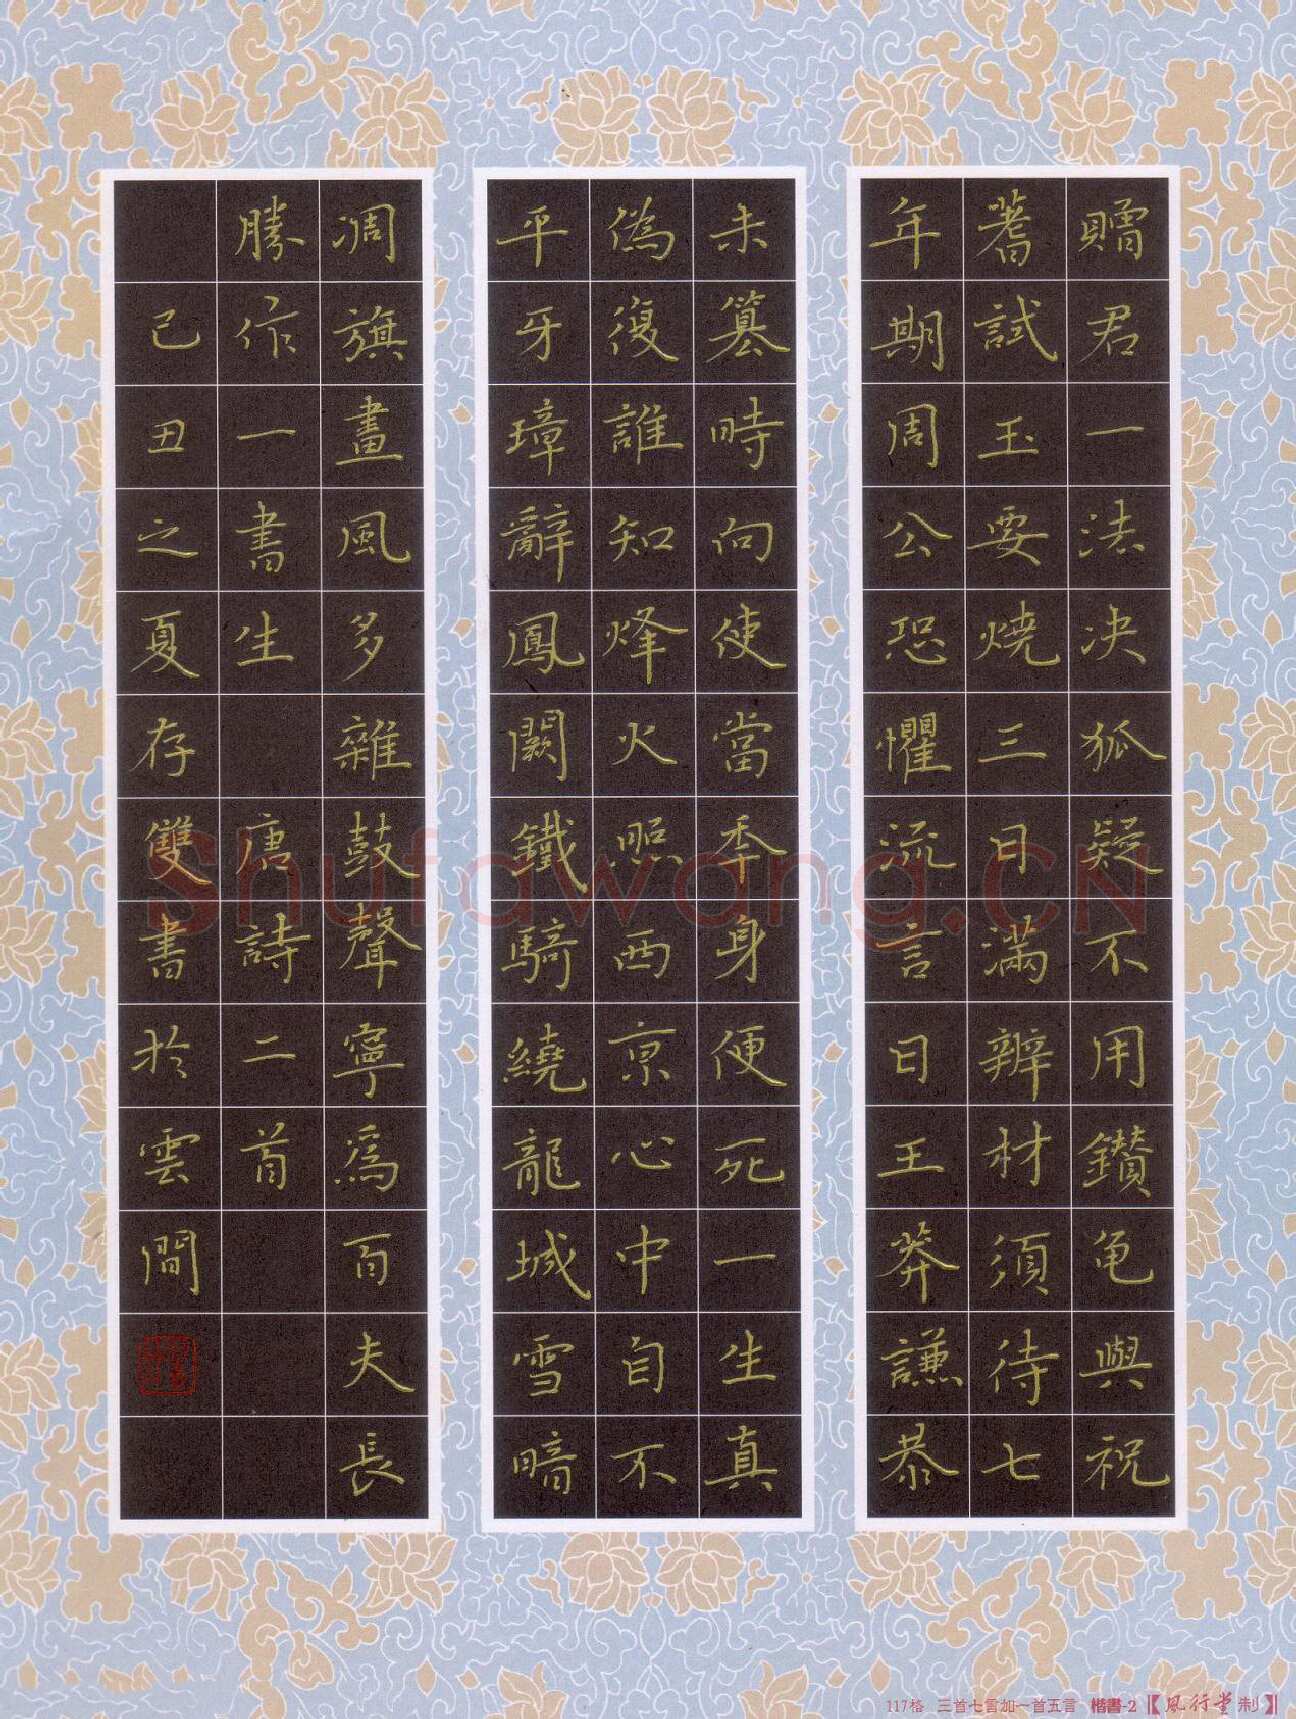 贈君一法决狐疑不用鑽亀與祝
蓍試玉要燒三日滿辨材須待七
年期周公恐懼流言日王莽謙恭
未篡時向使當秊身便死一生真
偽復誰知烽火照西京心中自不
平牙璋辭鳳闕鐵騎繞龍城雪暗
凋旗畫風多雜鼓聲寧爲百夫長
勝作一書生 唐詩二首
己丑之夏存雙書於雲間
Shufawang.CN
117格 三首七言加一首五言 楷書-2【風行堂制】